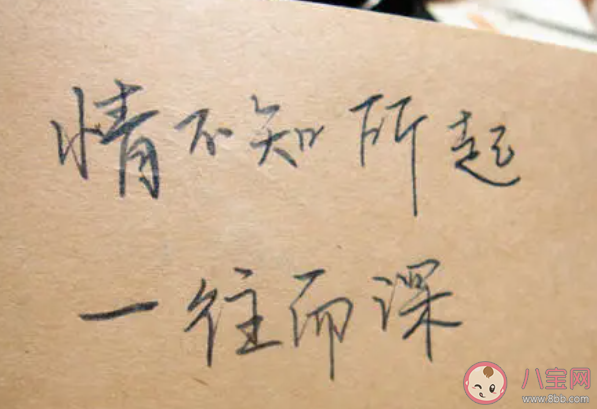 情不知所起
一往而深
八宝网
www.8bb.com